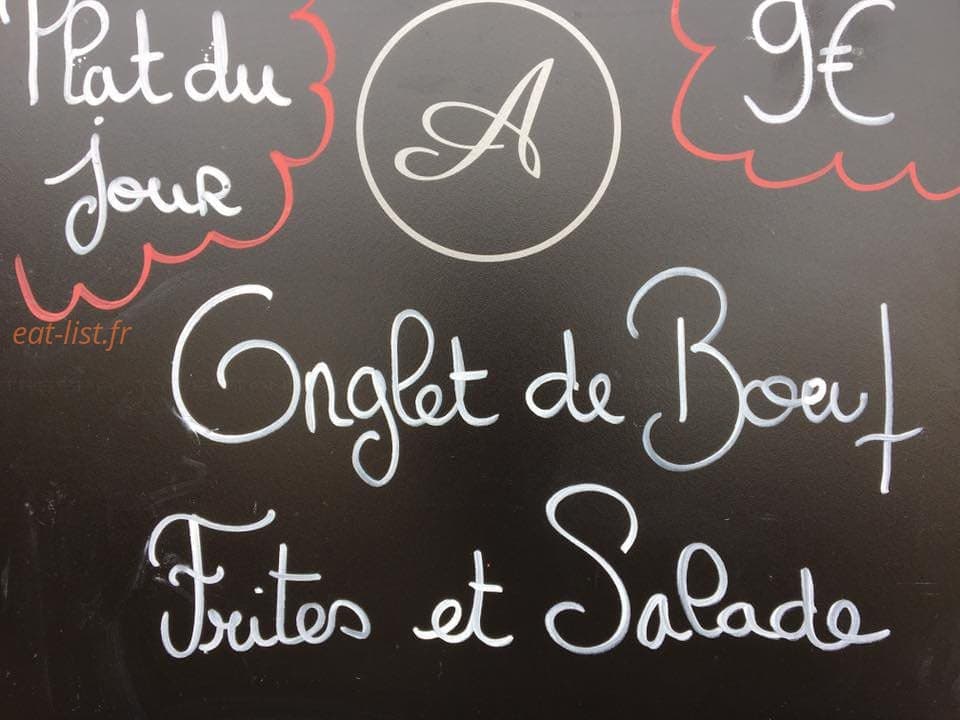 Plat du
jour
A
9€
eat-list.fr
Onglet de Boeuf
Frites et Salade